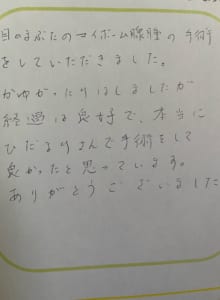 目のまぶたのマイボーム腺腫の手術
をしていただきました。
かゆかったりはしましたが
経過は良好で、本当に
ひだるりさんで手術をして
良かったと思っています。
ありがとうございました